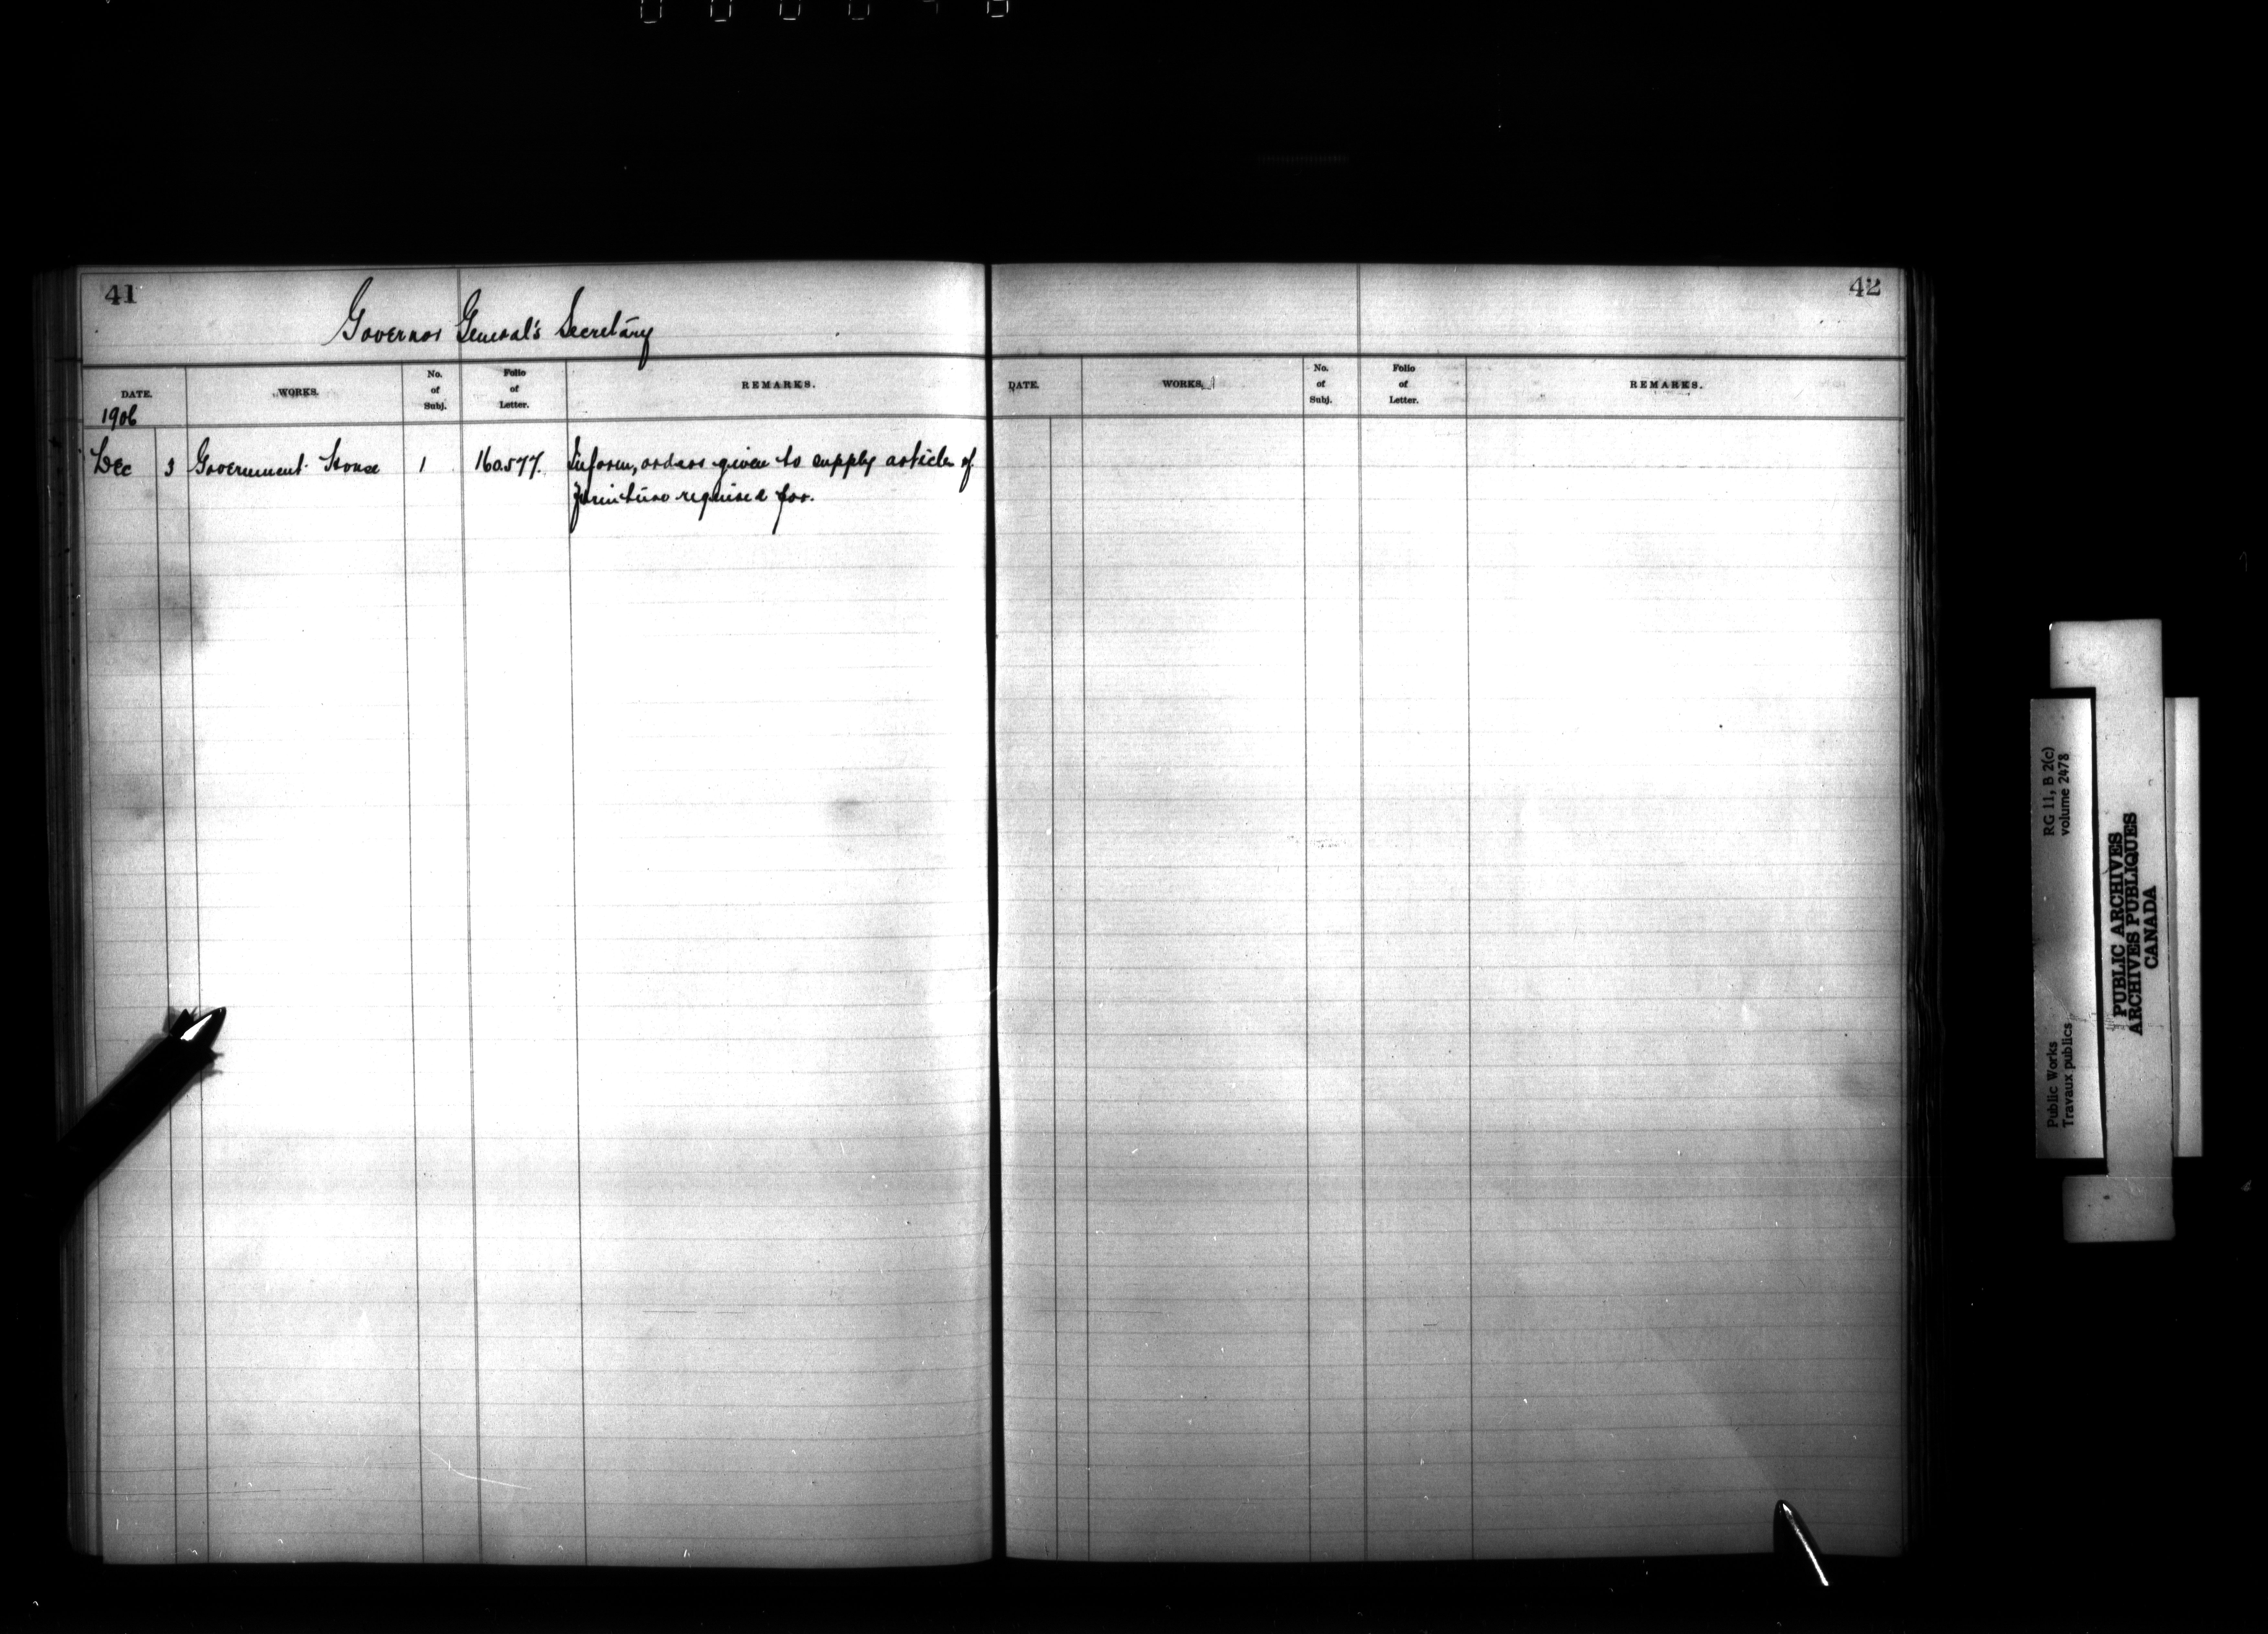 41
Governor General's Secretary
DATE. WORKS. No. of Subj. Folio of Letter. REMARKS.
1906
Dec 3 Government House 1 160.577. Inform, orders given to supply articles of
furniture required for.
42
DATE. WORKS. No. of Subj. Folio of Letter. REMARKS.
Public Works RG 11, B 2(c)
Travaux publics volume 2478
PUBLIC ARCHIVES
ARCHIVES PUBLIQUES
CANADA